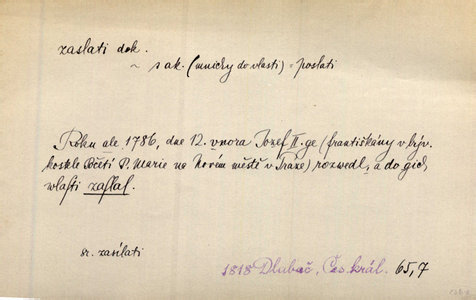 zaslati dok.
~ s ak. (mnichy do vlasti) = poslati
Roku ale 1786, dne 12. vnora Jozef II. ge (františkány v býv.
kostele Početí P. Marie na Novém městě v Praze) rozwedl, a do gich
wlasti zaslal.
sr. zasílati
1818 Dlabač, Čes. král. 65,7